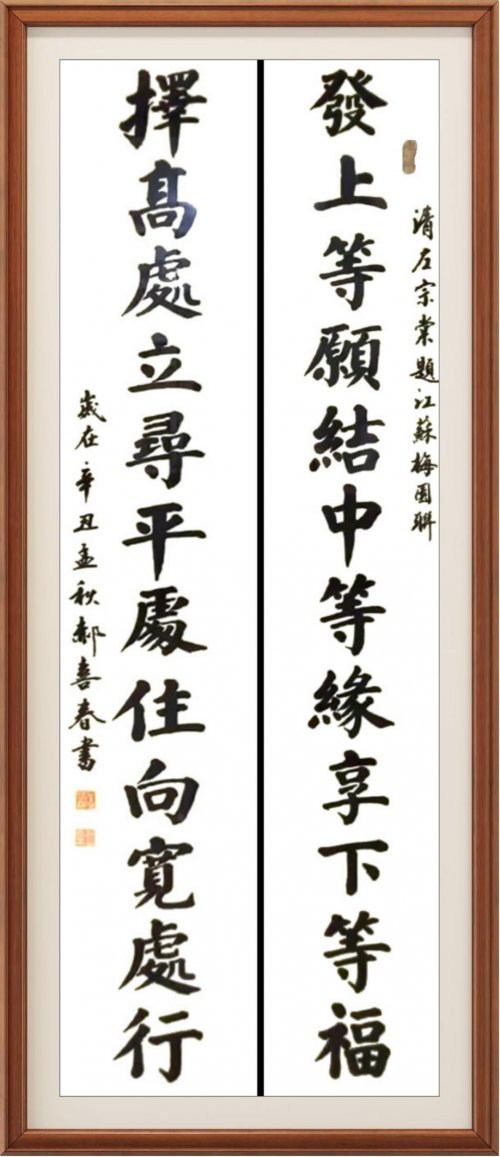 清左宗棠題江蘇梅園聯
發上等願結中等緣享下等福
擇高處立尋平處住向寬處行
歲在辛丑孟秋郝喜春書